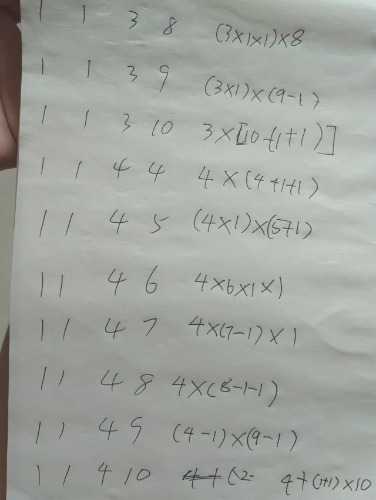 1 1 3 8 (3×1×1)×8
1 1 3 9 (3×1)×(9-1)
1 1 3 10 3×[10-(1+1)]
1 1 4 4 4×(4+1+1)
1 1 4 5 (4×1)×(5+1)
1 1 4 6 4×6×1×1
1 1 4 7 4×(7-1)×1
1 1 4 8 4×(8-1-1)
1 1 4 9 (4-1)×(9-1)
1 1 4 10 4+(1+1)×10